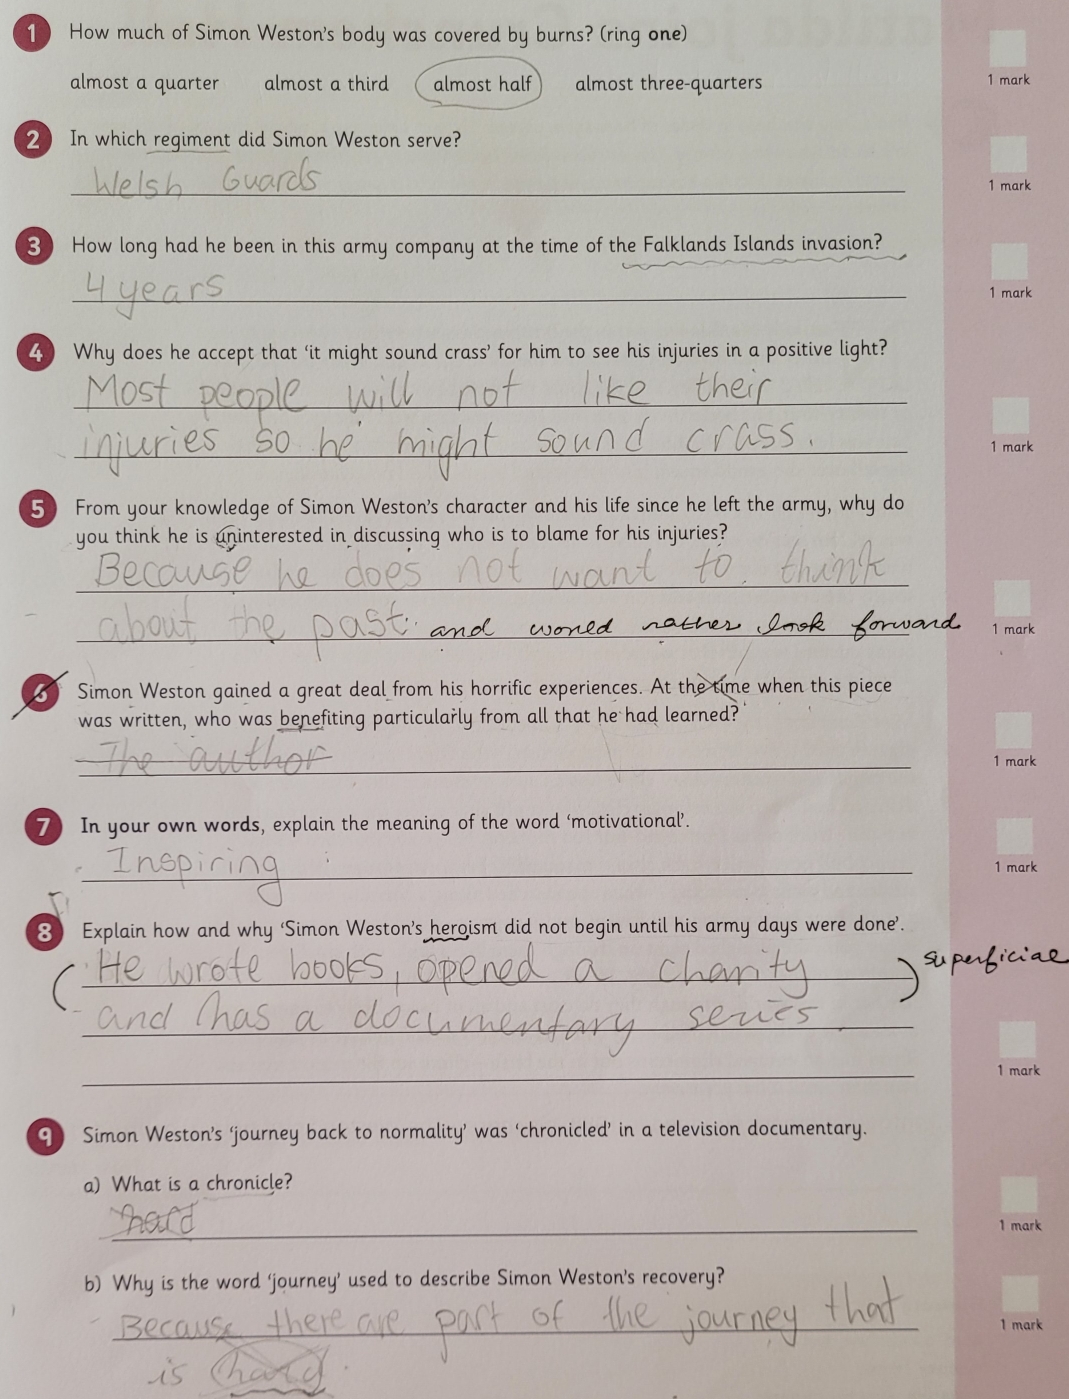 1 How much of Simon Weston's body was covered by burns? (ring one)
almost a quarter almost a third almost half almost three-quarters
1 mark
2 In which regiment did Simon Weston serve?
Welsh Guards
1 mark
3 How long had he been in this army company at the time of the Falklands Islands invasion?
4 years
1 mark
4 Why does he accept that 'it might sound crass' for him to see his injuries in a positive light?
Most people will not like their
injuries so he might sound crass.
1 mark
5 From your knowledge of Simon Weston's character and his life since he left the army, why do
you think he is uninterested in discussing who is to blame for his injuries?
Because he does not want to think
about the past. and woned rather look forward
1 mark
6 Simon Weston gained a great deal from his horrific experiences. At the time when this piece
was written, who was benefiting particularly from all that he had learned?
The author
1 mark
7 In your own words, explain the meaning of the word 'motivational'.
Inspiring
1 mark
8 Explain how and why 'Simon Weston's heroism did not begin until his army days were done'.
He wrote books, opened a charity superficial
and has a documentary series.
1 mark
9 Simon Weston's 'journey back to normality' was 'chronicled' in a television documentary.
a) What is a chronicle?
hard
1 mark
b) Why is the word 'journey' used to describe Simon Weston's recovery?
Because there are part of the journey that
1 mark
is hard.